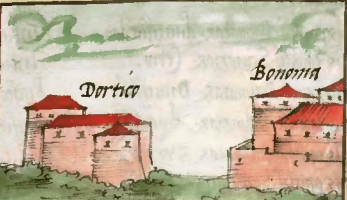 Dortico
Bonoma